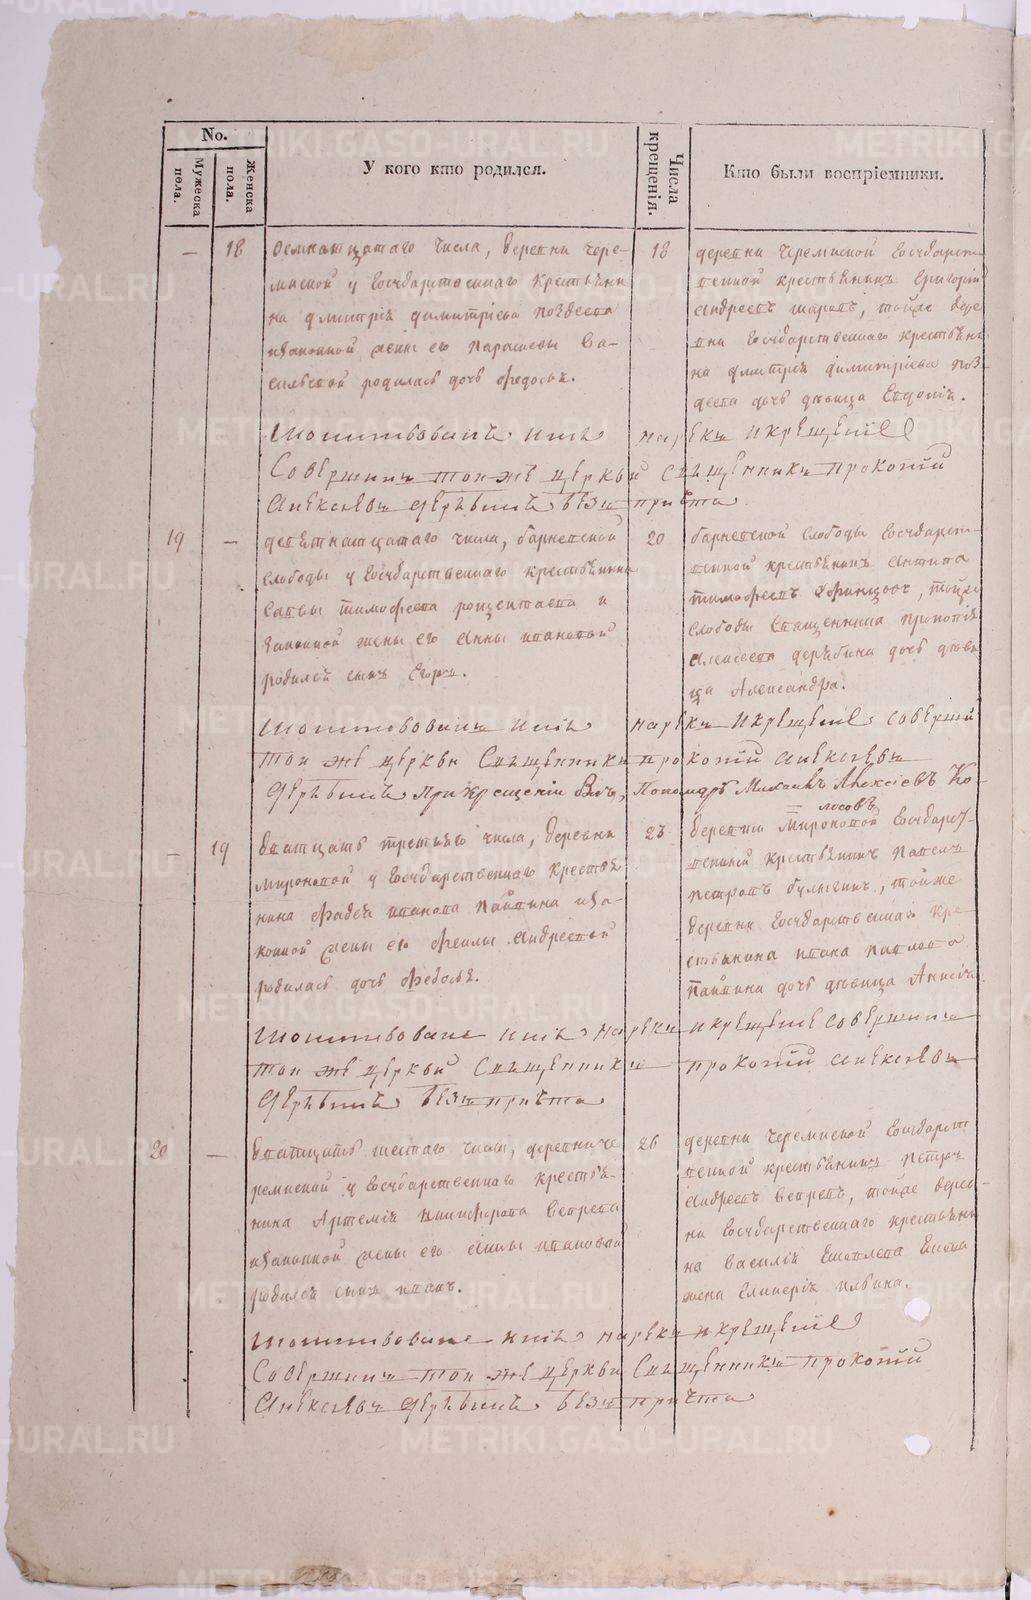 No.
Мужеска пола.
Женска пола.
У кого кто родился.
Числа крещенія.
Кто были воспріемники.
— 18 осмнатцатаго числа, деревни Чере-
миской у Государственнаго крестьяни
на Дмитрія Димитріева
изаконной жены ею Парасковьи Ва-
сильевой родилась дочь Федосья.
18
деревни Черемиской Государст-
венной крестьянинъ Григорій
Андреевъ, тойже дере
вни Государственнаго крестьяни
на Дмитрія Димитріева
дочь девица Евдокія.
Молитвовалъ имя нарекъ и крещеніе
Совершилъ той же церкви Священникъ Прокопій
Алексѣевъ Дерябинъ безъ причта
19 — девятнатцатаго числа, барневской
слободы у Государственнаго крестьянина
Саввы Тимофеева и
законной жены его Анны Ивановой
родился сынъ Егоръ.
20
барневской слободы Государст-
венной крестьянинъ Антипа
Тимофеевъ, тойже
слободы Священника Прокопія
Алексеева Дерябина дочь деви
ца Александра.
Молитвовалъ имя нарекъ и крещеніе соверши
той же церкви Священникъ Прокопій Алексѣевъ
Дерябинъ При крещеніи былъ, Пономарь Михаилъ Алексіевъ Ко-
лосовъ
— 19 дватцать третьяго числа, деревни
Мироновой у Государственнаго крестья
нина Фадея Иванова Пайвина иза-
конной жены ею Феклы Андреевой
родилась дочь Федосья.
23
деревни Мироновой Государст-
венный крестьянинъ Павелъ
Петровъ Булыгинъ, тойже
деревни Государственнаго кре-
стьянина Ивана Павлова
Пайвина дочь девица Анисія
Молитвовалъ имя нарекъ и крещеніе совершилъ
той же церквй Священникъ Прокопій Алексѣевъ
Дерябинъ безъ причта
20 — дватцать шестаго числа, деревни Че
ремиской у Государственнаго крестья-
нина Артемія Никифорова Ветрева
изаконной жены его Анны Ивановой
родился сынъ Иванъ.
26
деревни Черемиской Государст
венной крестьянинъ Петръ
Андреевъ Ветревъ, тойже дерев-
ни Государственнаго крестьяни
на Василія
жена Гликерія Ильина.
Молитвовалъ имя нарекъ и крещеніе
Совершилъ той же церкви Священникъ Прокопій
Алексѣевъ Дерябинъ безъ причта
METRIKI.GASO-URAL.RU